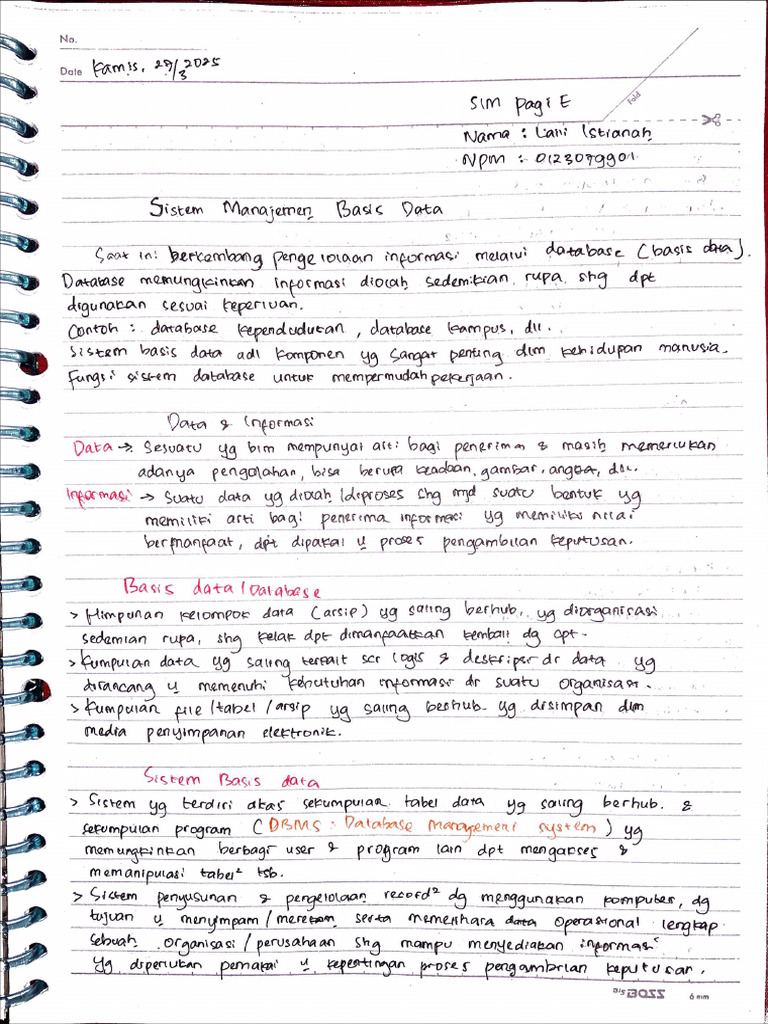 No.
Date Kamis, 28/3 2025
fold
SIM Pagi E
Nama : Laili Istianah
NPM : 0123079901
Sistem Manajemen Basis Data
Saat ini berkembang pengelolaan informasi melalui database (basis data).
Database memungkinkan informasi diolah sedemikian rupa shg dpt
digunakan sesuai keperluan.
Contoh : database kependudukan, database kampus, dll.
Sistem basis data adl komponen yg sangat penting dlm kehidupan manusia.
Fungsi sistem database untuk mempermudah pekerjaan.
Data & Informasi
Data → Sesuatu yg blm mempunyai arti bagi penerima & masih memerlukan
adanya pengolahan, bisa berupa keadaan, gambar, angka, dll.
Informasi → Suatu data yg diolah/diproses shg mjd suatu bentuk yg
memiliki arti bagi penerima informasi yg memiliki nilai
bermanfaat, dpt dipakai u proses pengambilan keputusan.
Basis data/Database
> Himpunan kelompok data (arsip) yg saling berhub. yg diorganisasi
sedemian rupa, shg kelak dpt dimanfaatkan kembali dg cpt.
> Kumpulan data yg saling terkait scr logis & deskripsi dr data yg
dirancang u memenuhi kebutuhan informasi dr suatu organisasi.
> Kumpulan file/tabel/arsip yg saling berhub. yg disimpan dlm
media penyimpanan elektronik.
Sistem Basis data
> Sistem yg terdiri atas sekumpulan tabel data yg saling berhub. &
sekumpulan program (DBMS : Database Management system) yg
memungkinkan berbagi user & program lain dpt mengakses &
memanipulasi tabel² tsb.
> Sistem penyusunan & pengelolaan record² dg menggunakan komputer, dg
tujuan u menyimpam/merekam serta memelihara data operasional lengkap
sebuah organisasi/perusahaan shg mampu menyediakan informasi
yg diperlukan pemakai u kepentingan proses pengambilan keputusan.
BIG BOSS 6 mm